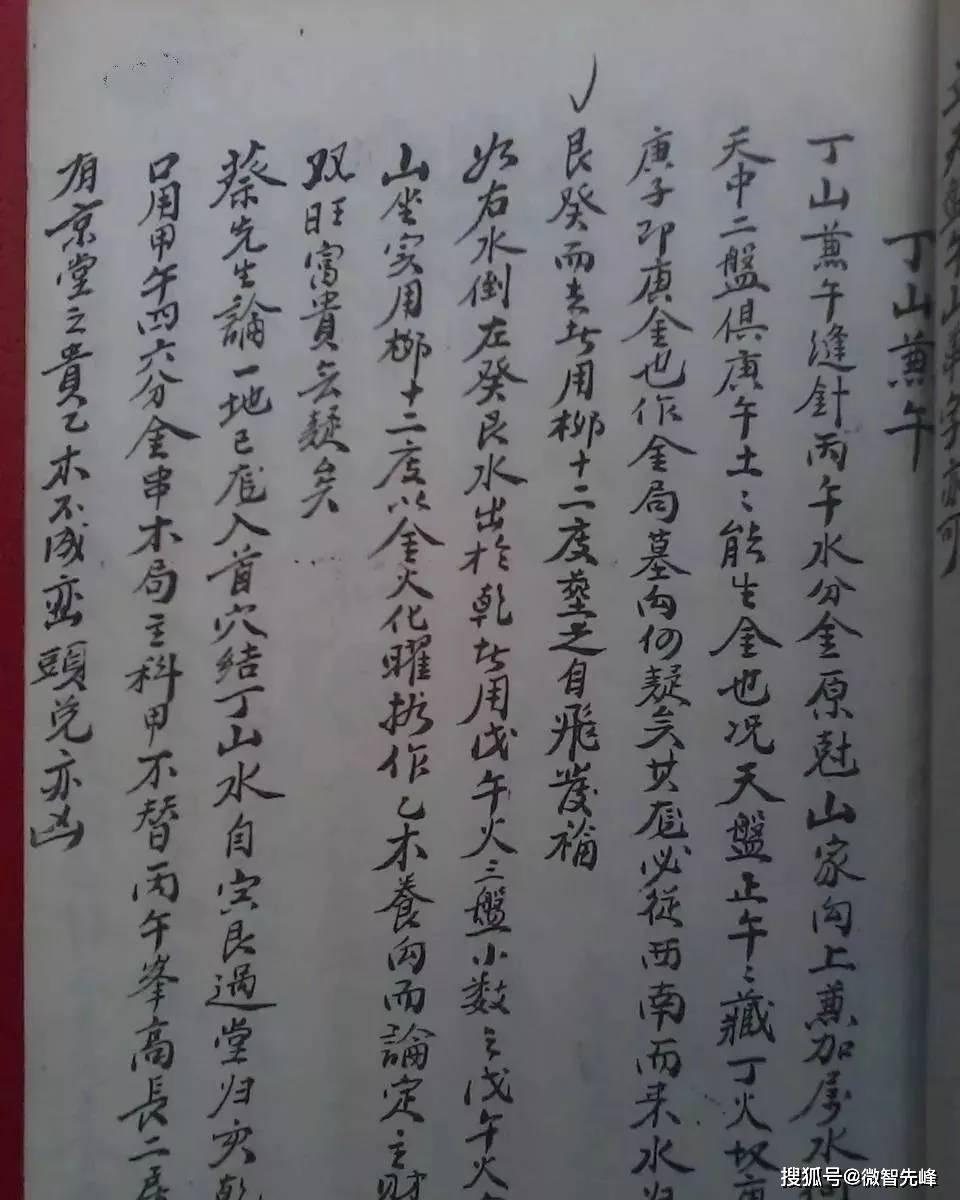 丁山兼午
丁山兼午縫針丙午水分金原尅山家向上兼加房水
天中二盤俱庚午土〻能生金也况天盤正午〻藏丁火
庚子即庚金也作金局墓向何疑矣其龙必從西南而来水归
艮癸而去皆用柳十二度塟之自飛發福
如右水倒左癸艮水出於乾皆用戊午火三盤小数之戊午火
山坐实用柳十二度以金火化曜挨作乙木養向而論定主财
双旺富貴無疑矣
蔡先生論一地已龙入首穴结丁山水自宫艮過堂归亥乾
口用甲午四六分金串木局主科甲不替丙午峯高長二房
有京堂之貴乙木不成峦頭兑亦凶
搜狐号@微智先峰